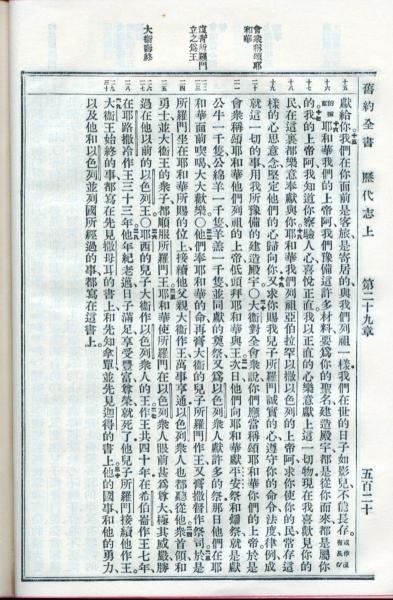 舊約全書 歷代志上 第二十九章 五百二十
會衆稱頌耶
和華
復膏所羅門
立之爲王
大衛壽終
獻給你我們在你面前是客旅是寄居的與我們列祖一樣我們在世的日子如影兒不能長存或作沒有長存
的指望耶和華我們的上帝阿我們豫備這許多材料要爲你的聖名建造殿宇都是從你而來都是屬你
的我的上帝阿我知道你察驗人心喜悅正直我以正直的心樂意獻上這一切物現在我喜歡見你的
民在這裏都樂意奉獻與你耶和華我們列祖亞伯拉罕以撒以色列的上帝阿求你使你的民常存這
樣的心思意念堅定他們的心歸向你又求你賜我兒子所羅門誠實的心遵守你的命令法度律例成
就這一切的事用我所豫備的建造殿宇〇大衛對全會衆說你們應當稱頌耶和華你們的上帝於是
會衆稱頌耶和華他們列祖的上帝低頭拜耶和華與王次日他們向耶和華獻平安祭和燔祭就是獻
公牛一千隻公綿羊一千隻羊羔一千隻並同獻的奠祭又爲以色列衆人獻許多的祭那日他們在耶
和華面前喫喝大大歡樂〇他們奉耶和華的命再膏大衛的兒子所羅門作王又膏撒督作祭司於是
所羅門坐在耶和華所賜的位上接續他父親大衛作王萬事亨通以色列衆人也都聽從他衆首領和
勇士並大衛王的衆子都順服所羅門王耶和華使所羅門在以色列衆人眼前甚爲尊大極其威嚴勝
過在他以前的以色列王〇耶西的兒子大衛作以色列衆人的王作王共四十年在希伯崙作王七年
在耶路撒冷作王三十三年他年紀老邁日子滿足享受豐富尊榮就死了他兒子所羅門接續他作王
大衛王始終的事都寫在先見撒母耳的書上和先知拿單並先見迦得的書上他的國事和他的勇力
以及他和以色列並列國所經過的事都寫在這書上